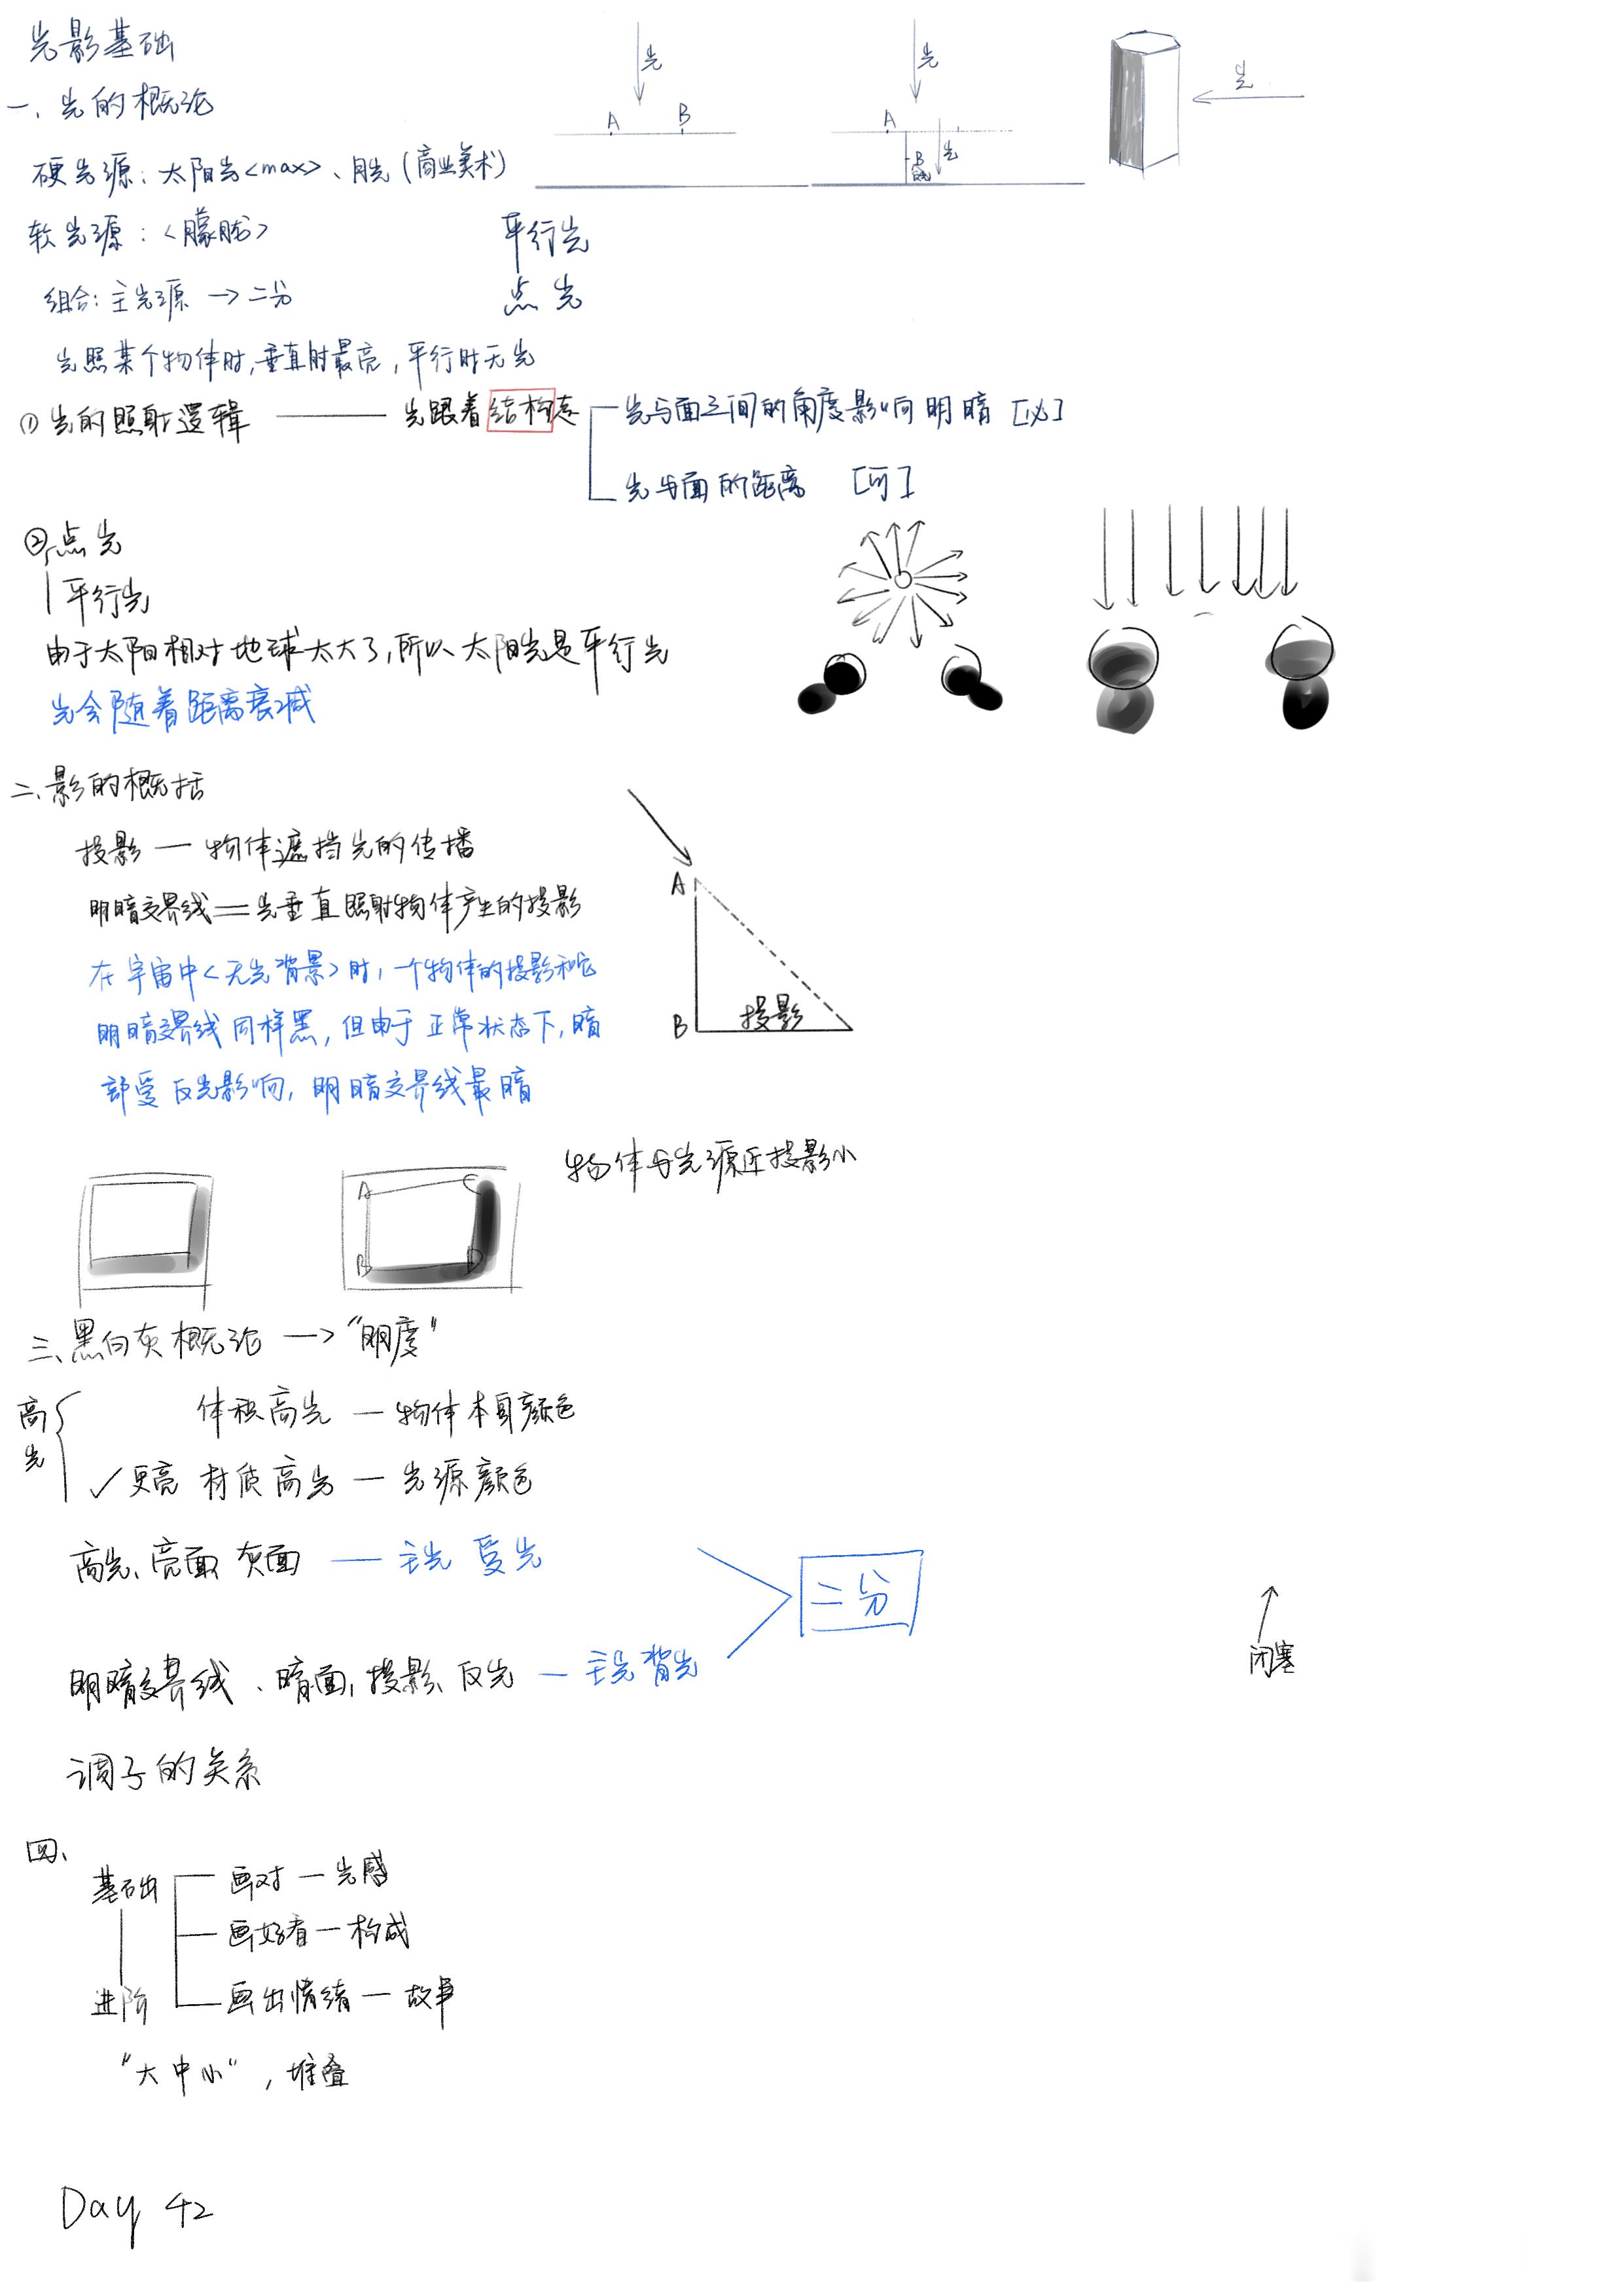 光影基础
一、光的概论
硬光源：太阳光<max>、月光（商业美术）
软光源：<朦胧>
平行光
点光
组合：主光源 → 二分
光照某个物体时，垂直时最亮，平行时无光
光
A B
光
A
B
光
光
① 光的照射逻辑 —— 光跟着结构走
光与面之间的角度影响明暗 [必]
光与面的距离 [可]
② 点光
平行光
由于太阳相对地球太大了，所以太阳光是平行光
光会随着距离衰减
二、影的概括
投影 — 物体遮挡光的传播
明暗交界线 = 光垂直照射物体产生的投影
在宇宙中<无光背景>时，一个物体的投影和它
明暗交界线同样黑，但由于正常状态下，暗
部受反光影响，明暗交界线最暗
A
B 投影
物体与光源近投影小
A C
B D
三、黑白灰概论 → “明度”
高光
体积高光 — 物体本身颜色
✓更亮 材质高光 — 光源颜色
高光、亮面、灰面 — 主光 受光
二分
明暗交界线、暗面，投影、反光 — 主光背光
闭塞
调子的关系
四、
基础
画对 — 光感
画好看 — 构成
进阶
画出情绪 — 故事
“大中小”，堆叠
Day 42